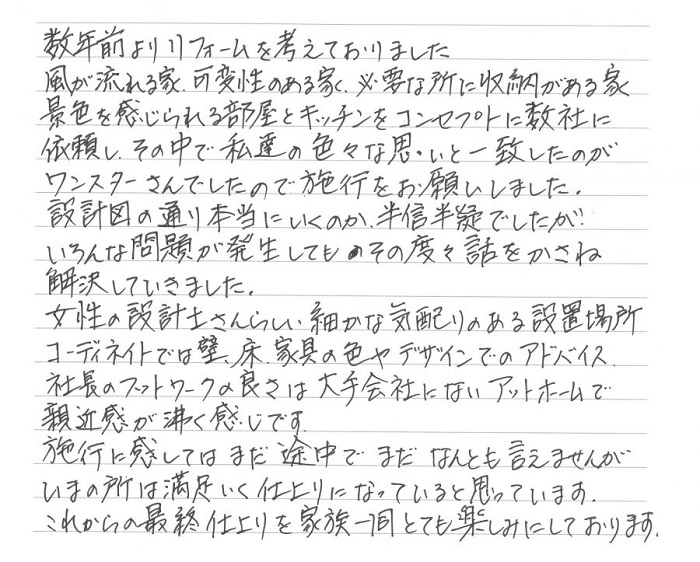 数年前よりリフォームを考えておりました
風が流れる家、可変性のある家、必要な所に収納がある家
景色を感じられる部屋とキッチンをコンセプトに数社に
依頼し、その中で私達の色々な思いと一致したのが
ワンスターさんでしたので施行をお願いしました。
設計図の通り本当にいくのか、半信半疑でしたが!
いろんな問題が発生してもその度々話をかさね
解決していきました。
女性の設計士さんらしい細かな気配りのある設置場所
コーディネイトでは壁、床、家具の色やデザインでのアドバイス、
社長のフットワークの良さは大手会社にないアットホームで
親近感が沸く感じです。
施行に感してはまだ途中でまだなんとも言えませんが
いまの所は満足いく仕上りになっていると思っています。
これからの最終仕上りを家族一同とても楽しみにしております。